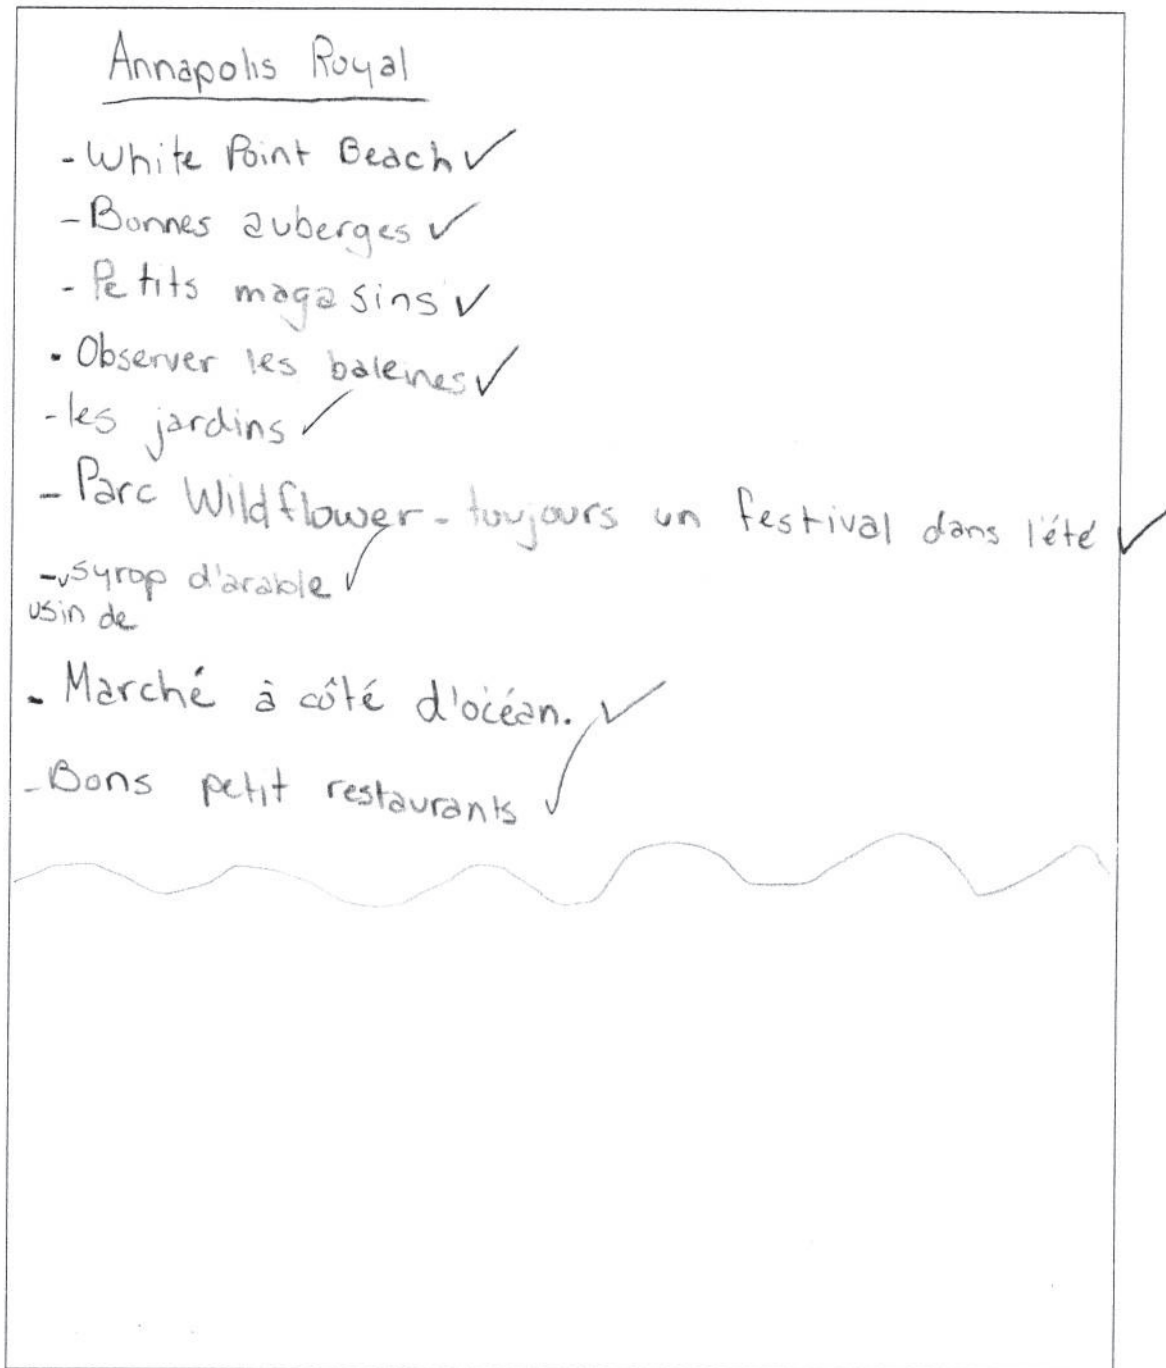 Annapolis Royal
- White Point Beach ✓
- Bonnes auberges ✓
- Petits magasins ✓
- Observer les baleines ✓
- les jardins ✓
- Parc Wildflower - toujours un festival dans l'été ✓
- syrop d'arable ✓
usin de
- Marché à côté d'océan. ✓
- Bons petit restaurants ✓